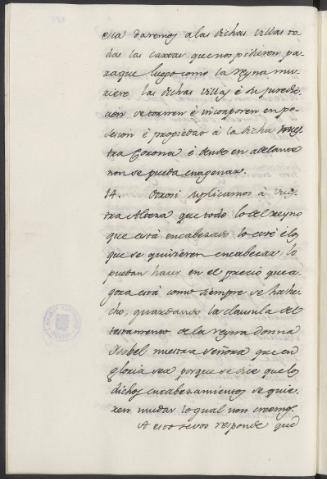 cia daremos a las dichas villas to
das las cartas que nos pidieren pa
raque luego como la reyna mu
riere las dichas villas é su juredi
cion se tornen é incorporen en po
sesion é propiedad á la dicha vues
tra Corona é dende en adelante
non se pueda enagenar.
14. Otrosi suplicamos á vues
tra Alteza que todo lo del reyno
que está encabezado lo esté é lo
que se quisieren encabezar lo
puedan hacer en el precio que a
gora está como siempre se ha he
cho, guardando la clausula del
testamento de la reyna donna
Isabel nuestra Señora que en
gloria sea porque se dice que los
dichos encabezamientos se quie
ren mudar lo qual non creemos.
A esto se vos responde que